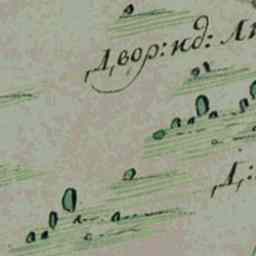 Двор: нд: Ли
Д: